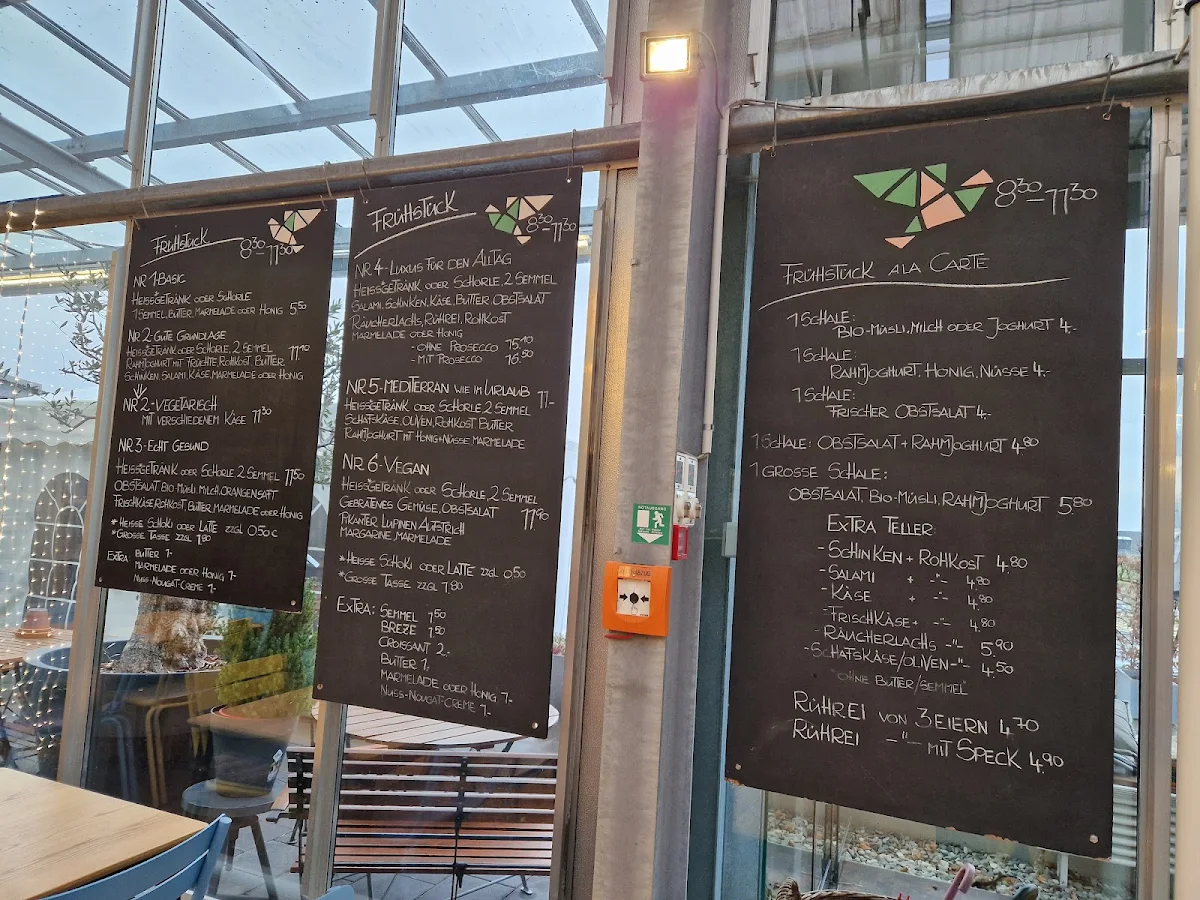 FRÜHSTÜCK
8³⁰-11³⁰
NR 1-BASIC
HEISSGETRÄNK ODER SCHORLE
1 SEMMEL, BUTTER, MARMELADE ODER HONIG 5,50
NR 2-GUTE GRUNDLAGE
HEISSGETRÄNK ODER SCHORLE, 2 SEMMEL 11,10
RAHMJOGHURT MIT FRÜCHTE, ROHKOST, BUTTER
SCHINKEN, SALAMI, KÄSE, MARMELADE ODER HONIG
NR 2-VEGETARISCH
MIT VERSCHIEDENEM KÄSE 11,30
NR 3-ECHT GESUND
HEISSGETRÄNK ODER SCHORLE, 2 SEMMEL 11,50
OBSTSALAT, BIO-MÜSLI, MILCH, ORANGENSAFT
FRISCHKÄSE, ROHKOST, BUTTER, MARMELADE ODER HONIG
*HEISSE SCHOKI ODER LATTE ZZGL 0,50 €
*GROSSE TASSE ZZGL 1,80
EXTRA: BUTTER 1-
MARMELADE ODER HONIG 1-
NUSS-NOUGAT-CREME 1-
FRÜHSTÜCK
8³⁰-11³⁰
NR 4-LUXUS FÜR DEN ALLTAG
HEISSGETRÄNK ODER SCHORLE, 2 SEMMEL
SALAMI, SCHINKEN, KÄSE, BUTTER, OBSTSALAT
RÄUCHERLACHS, RÜHREI, ROHKOST
MARMELADE ODER HONIG
- OHNE PROSECCO 15,10
- MIT PROSECCO 16,50
NR 5-MEDITERRAN WIE IM URLAUB 11.-
HEISSGETRÄNK ODER SCHORLE, 2 SEMMEL
SCHAFSKÄSE, OLIVEN, ROHKOST, BUTTER
RAHMJOGHURT MIT HONIG+NÜSSE, MARMELADE
NR 6-VEGAN
HEISSGETRÄNK ODER SCHORLE, 2 SEMMEL
GEBRATENES GEMÜSE, OBSTSALAT 11,90
PIKANTER LUPINEN AUFSTRICH
MARGARINE, MARMELADE
*HEISSE SCHOKI ODER LATTE ZZGL 0,50
*GROSSE TASSE ZZGL 1,80
EXTRA: SEMMEL 1,50
BREZE 1,50
CROISSANT 2.-
BUTTER 1,
MARMELADE ODER HONIG 1-
NUSS-NOUGAT-CREME 1-
8³⁰-11³⁰
FRÜHSTÜCK ALA CARTE
1 SCHALE:
BIO-MÜSLI, MILCH ODER JOGHURT 4.-
1 SCHALE:
RAHMJOGHURT, HONIG, NÜSSE 4.-
1 SCHALE:
FRISCHER OBSTSALAT 4.-
1 SCHALE: OBSTSALAT + RAHMJOGHURT 4,80
1 GROSSE SCHALE:
OBSTSALAT, BIO-MÜSLI, RAHMJOGHURT 5,80
EXTRA TELLER:
- SCHINKEN + ROHKOST 4,80
- SALAMI + -"- 4,80
- KÄSE + -"- 4,80
- FRISCHKÄSE + -"- 4,80
- RÄUCHERLACHS -"- 5,90
- SCHAFSKÄSE/OLIVEN -"- 4,50
"OHNE BUTTER/SEMMEL"
RÜHREI VON 3 EIERN 4,70
RÜHREI -"- MIT SPECK 4,90